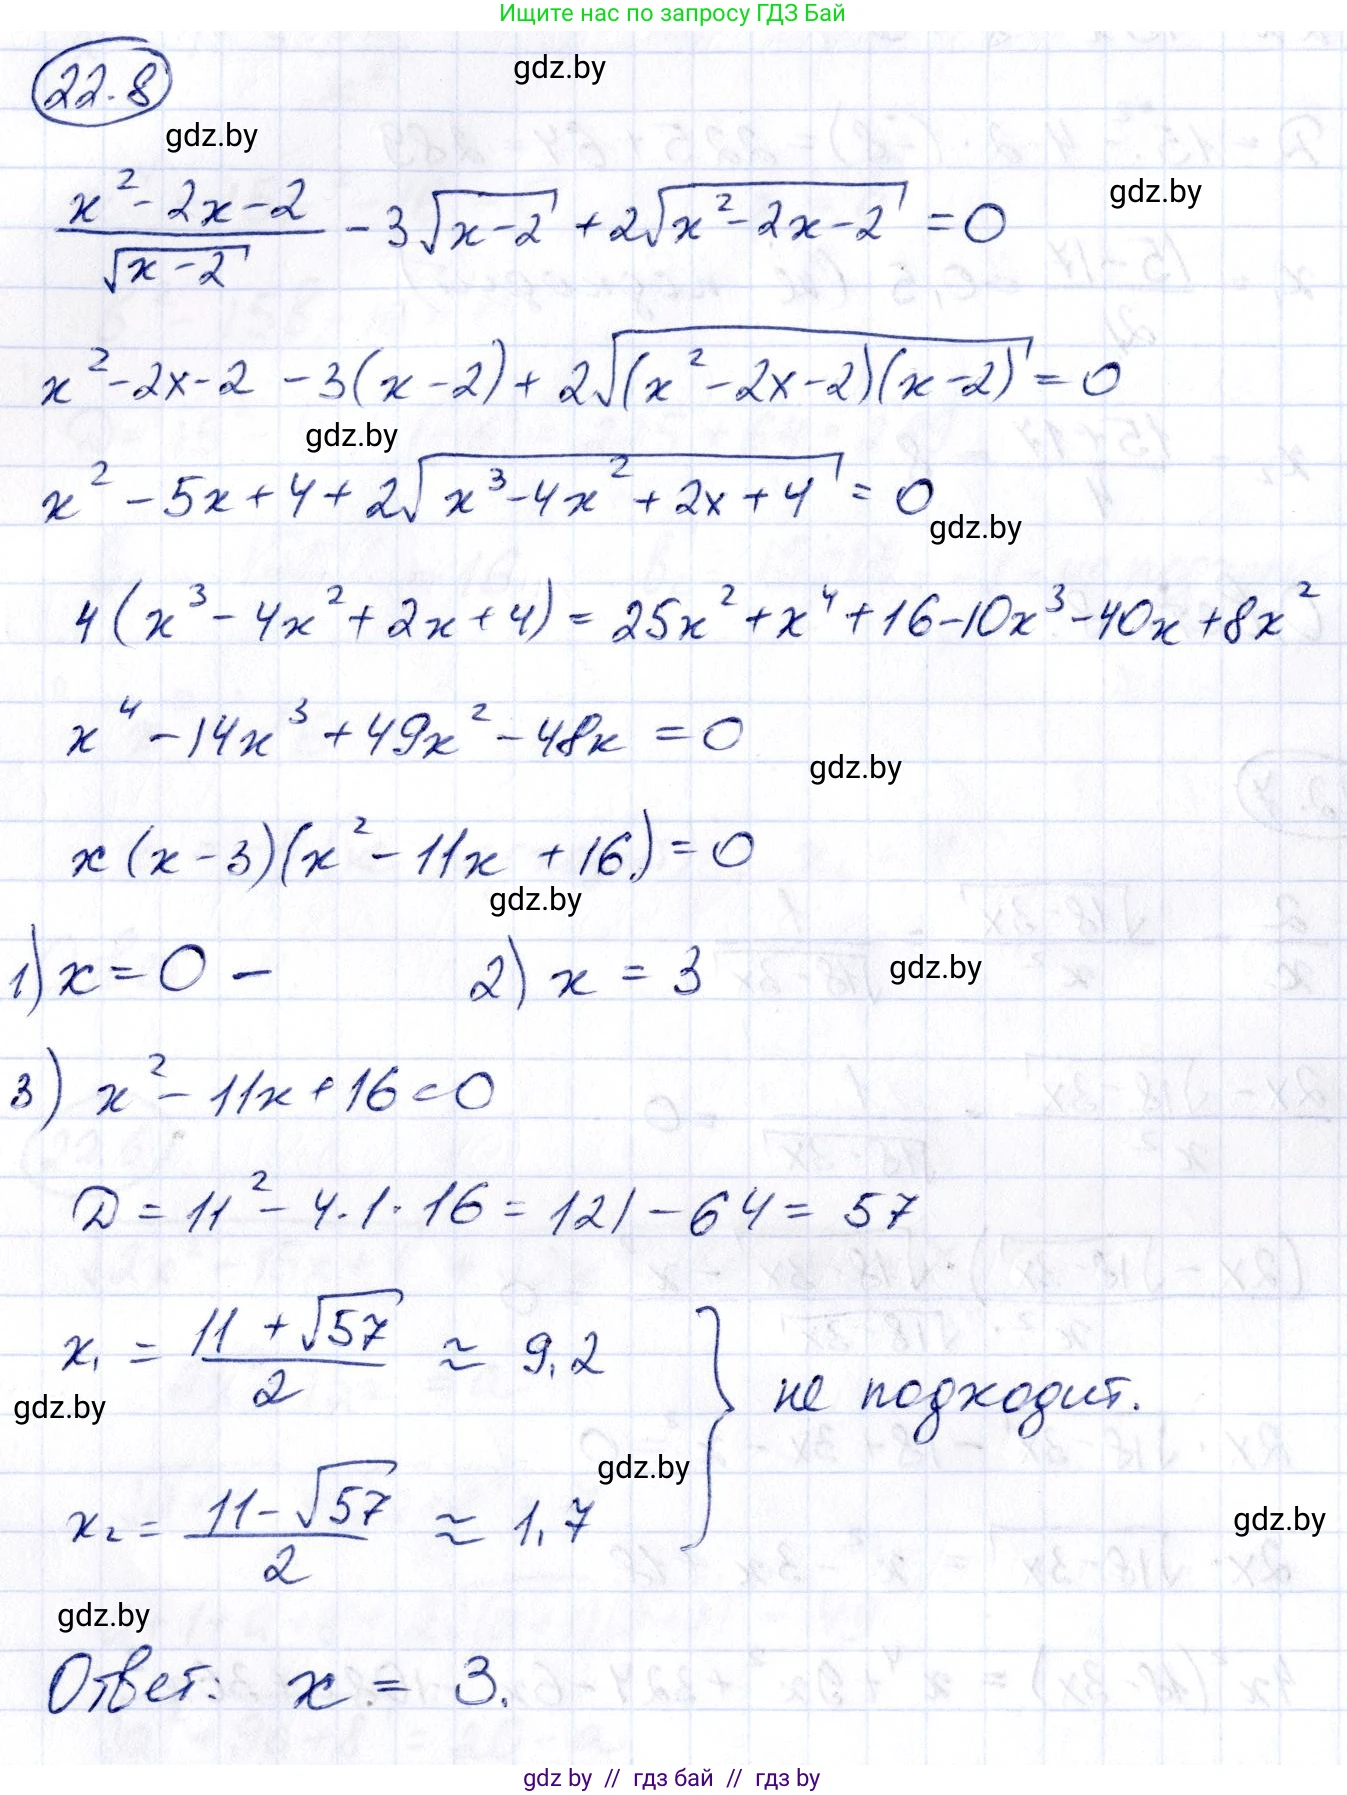 Ищите нас по запросу ГДЗ Бай
22.8
gdz.by
gdz.by
gdz.by
(x² - 2x - 2)/√(x - 2) - 3√(x - 2) + 2√(x² - 2x - 2) = 0
x² - 2x - 2 - 3(x - 2) + 2√((x² - 2x - 2)(x - 2)) = 0
gdz.by
x² - 5x + 4 + 2√(x³ - 4x² + 2x + 4) = 0
gdz.by
4(x³ - 4x² + 2x + 4) = 25x² + x⁴ + 16 - 10x³ - 40x + 8x²
x⁴ - 14x³ + 49x² - 48x = 0
gdz.by
x(x - 3)(x² - 11x + 16) = 0
gdz.by
1) x = 0 - 2) x = 3
gdz.by
3) x² - 11x + 16 = 0
D = 11² - 4·1·16 = 121 - 64 = 57
x₁ = (11 + √57)/2 ≈ 9,2
gdz.by
не подходит.
gdz.by
x₂ = (11 - √57)/2 ≈ 1,7
gdz.by
gdz.by
Ответ: x = 3.
gdz by // гдз бай // гдз by